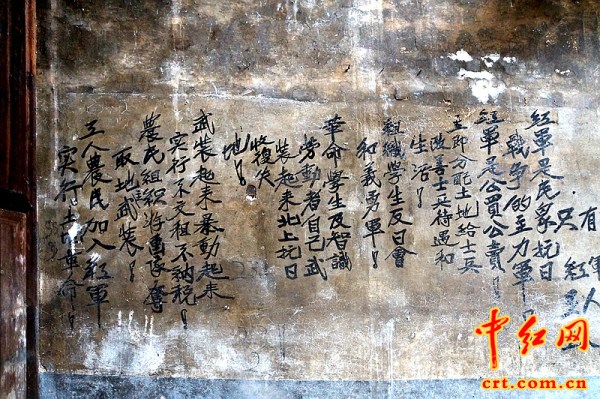 有
軍人
只紅
紅軍是民眾抗日
戰爭的主力軍！
紅軍是公買公賣！
立即分配土地給士兵
改善士兵待遇和
生活！
組織學生反日會
和義勇軍！
革命學生及智識
勞動者自己武
裝起來北上抗日
收復失
地！
武裝起來暴動起來
實行不交租不納稅！
農民組織游擊隊奪
取地武裝！
工人農民加入紅軍
實行土地革命！
中红网
crt.com.cn